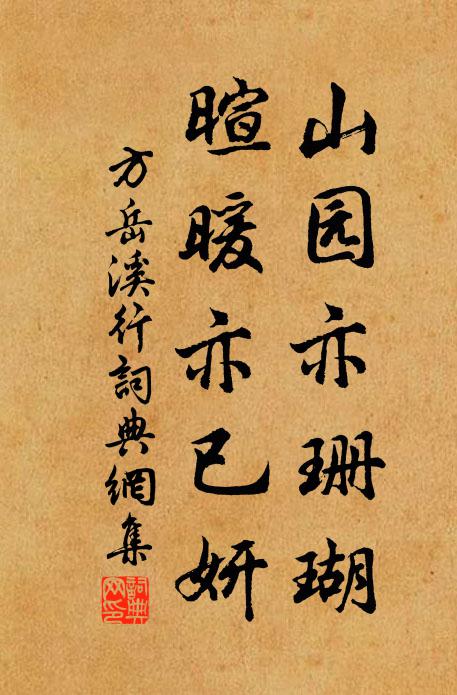 山园亦珊瑚
暄暖亦已妍
方岳溪行詞典網集
詞典
网印